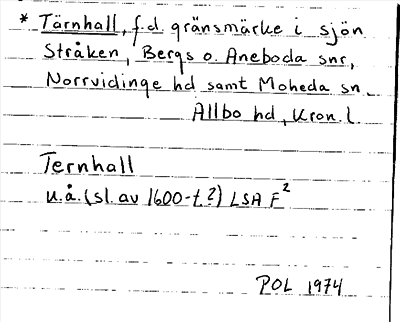 * Tärnhall, f.d. gränsmärke i sjön
Stråken, Bergs o. Aneboda snr,
Norrvidinge hd samt Moheda sn
Allbo hd, Kron. l.
Ternhall
u.å. (sl. av 1600-t?) LSA F²
POL 1974